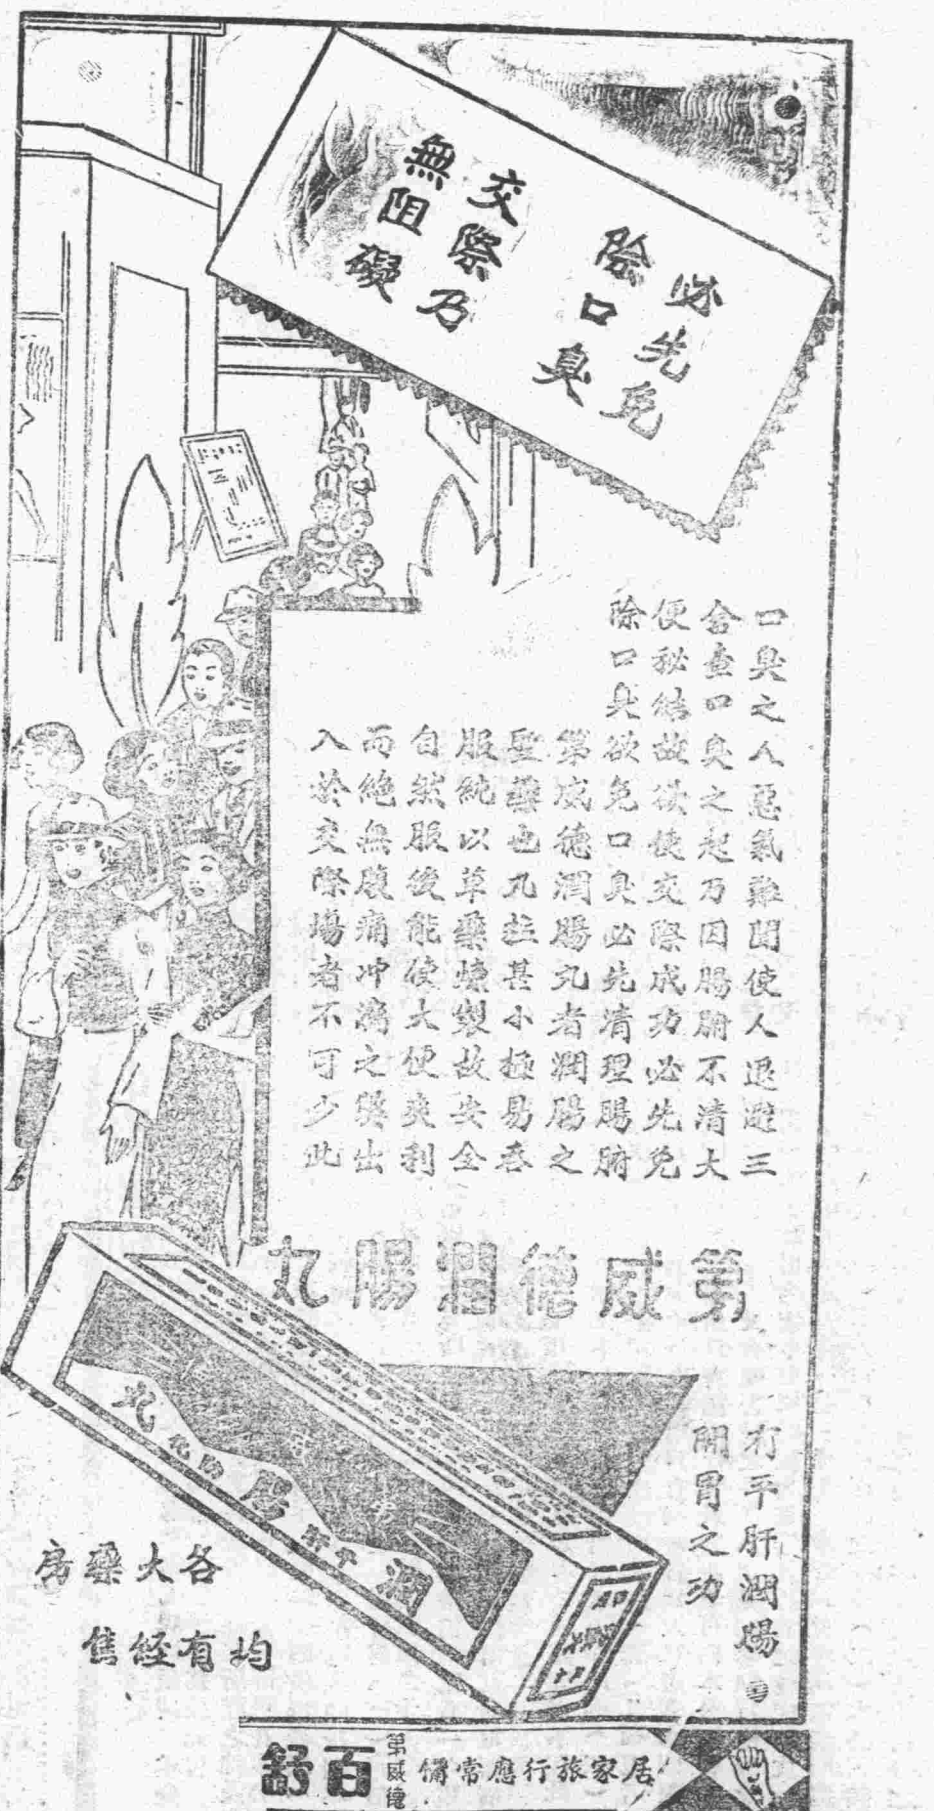 必先免
除口臭
交際乃
無阻礙
口臭之人惡氣難聞使人退避三
舍查口臭之起乃因腸腑不清大
便秘結故欲使交際成功必先免
除口臭欲免口臭必先清理腸腑
第威德潤腸丸者潤腸之
聖藥也丸粒甚小極易吞
服純以草藥煉製故安全
自然服後能使大便爽利
而絕無腹痛冲瀉之弊出
入於交際場者不可少此
第威德潤腸丸
有平肝潤腸
開胃之功
潤腸丸
各大藥房
均有經售
居家旅行應常備
第威德
百舒